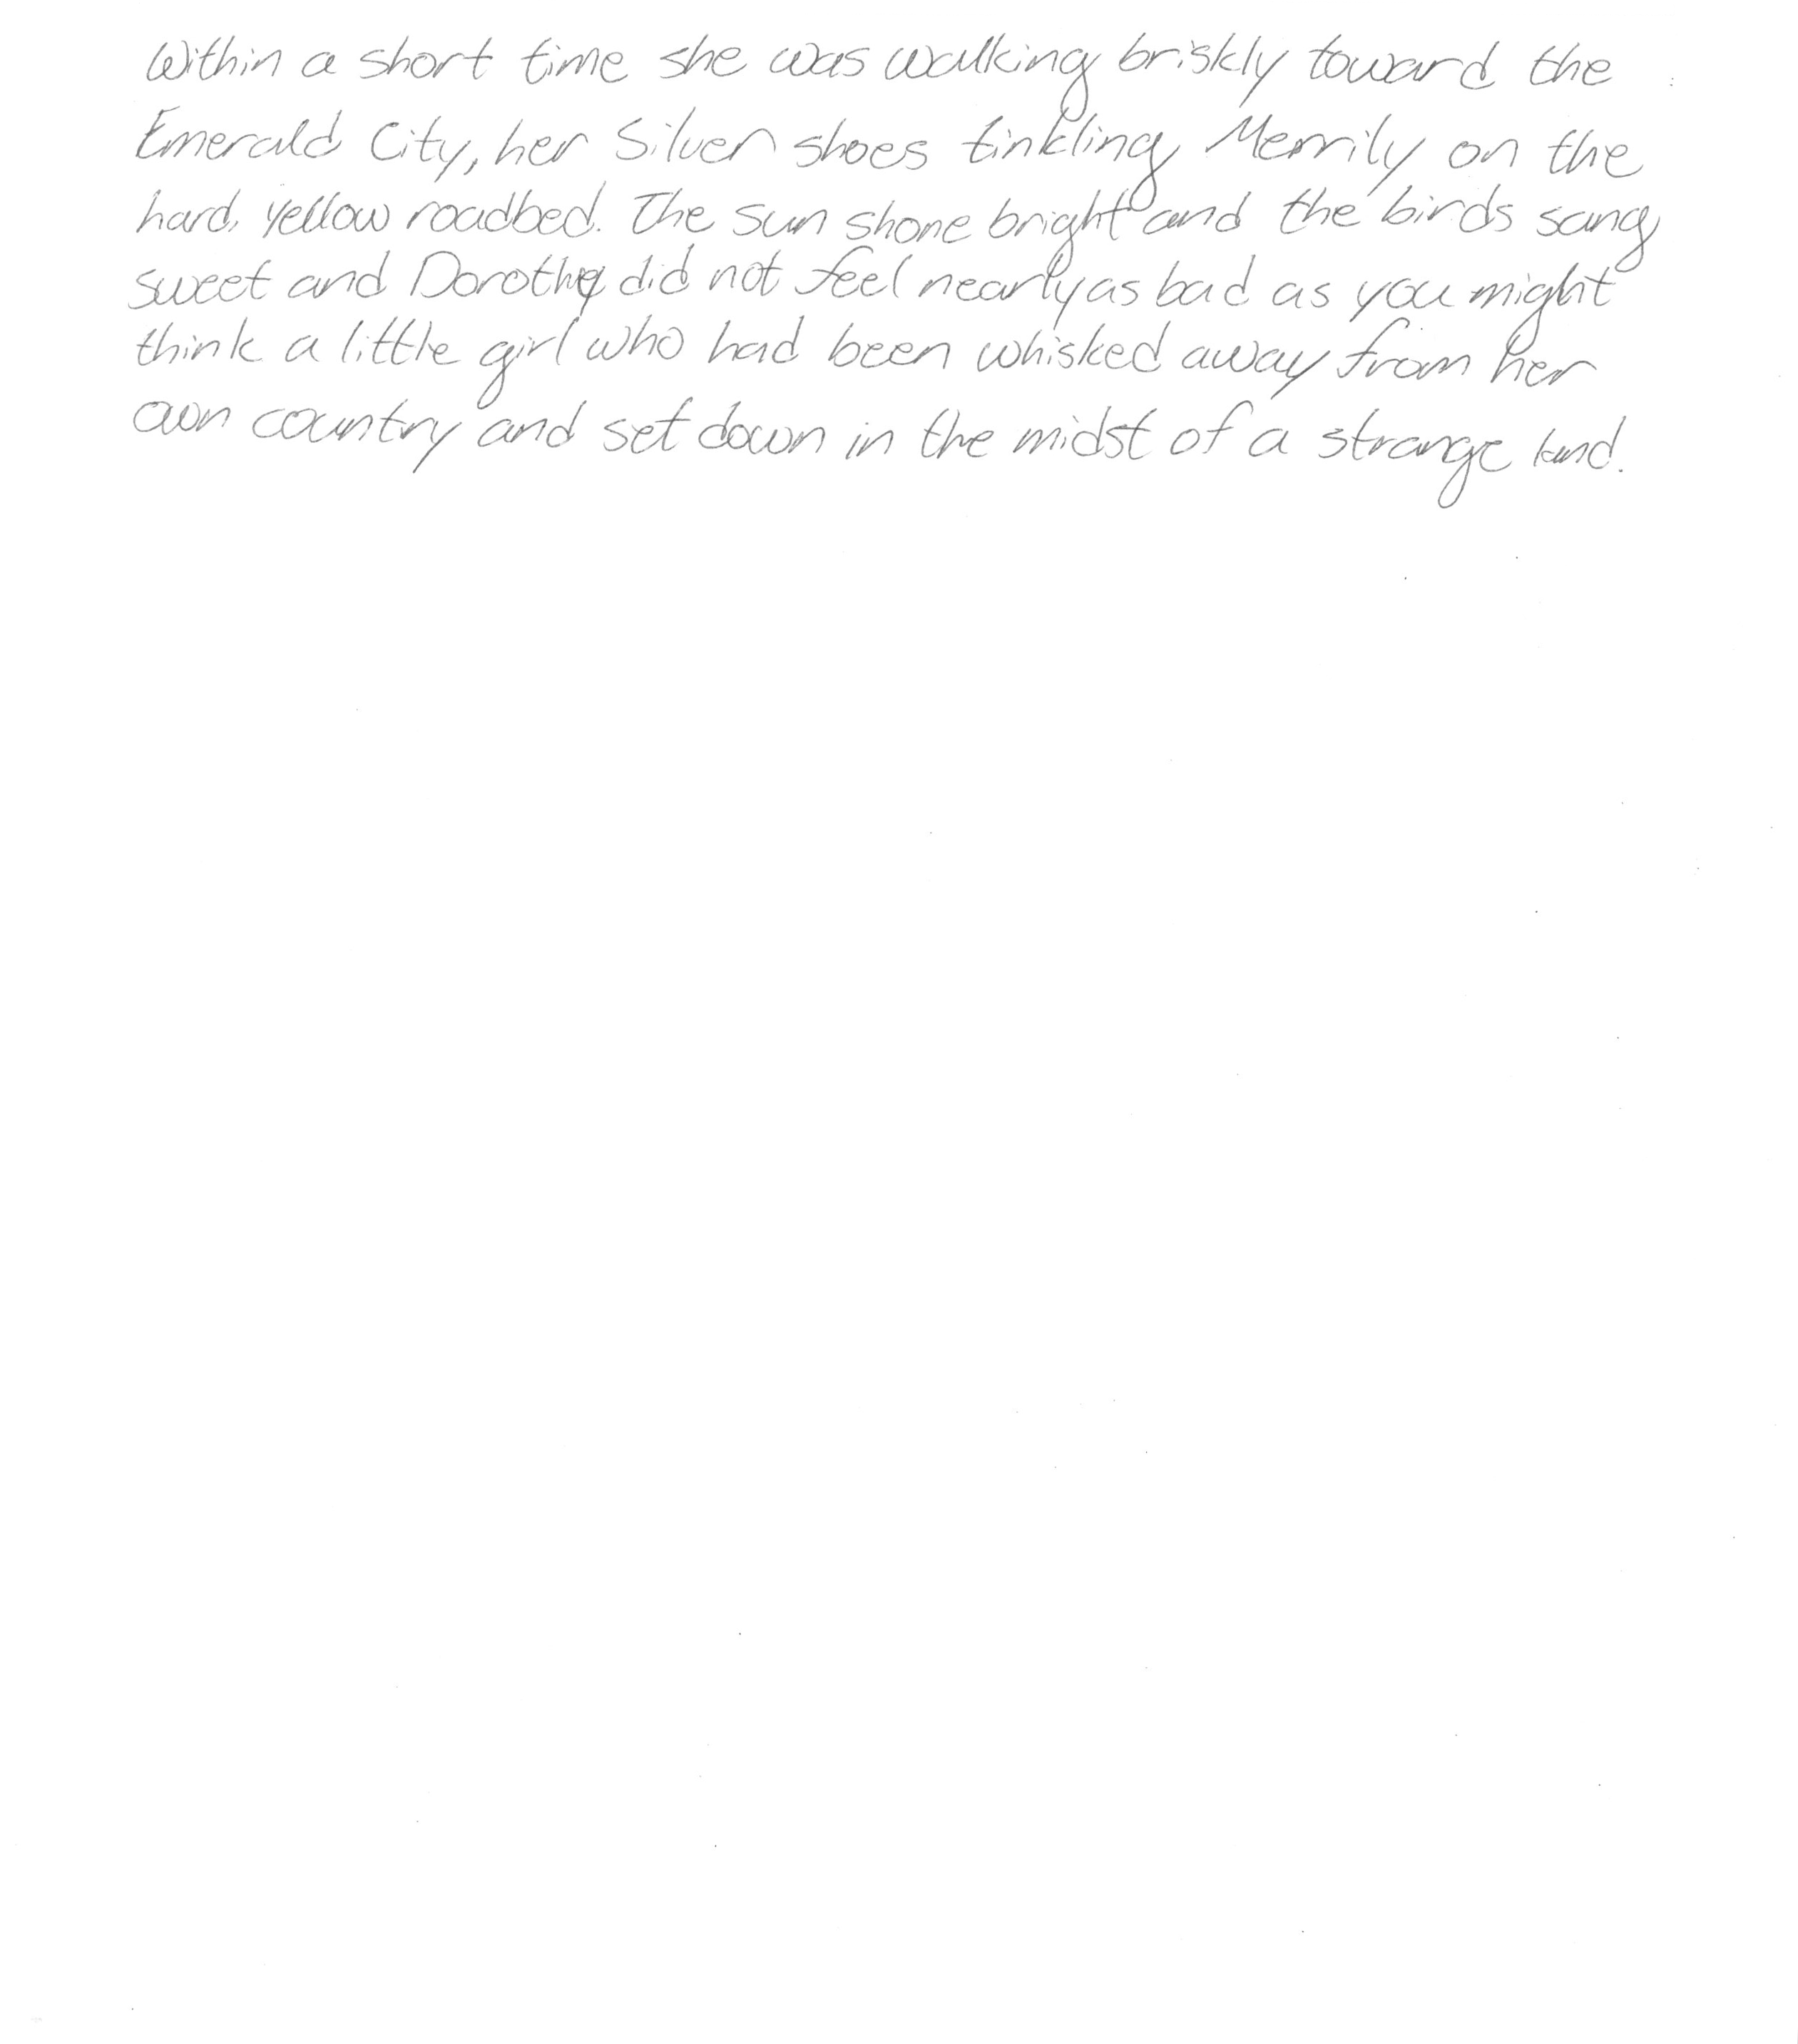 Within a short time she was walking briskly toward the
Emerald City, her Silver shoes tinkling Merrily on the
hard, yellow roadbed. The sun shone bright and the birds sang
sweet and Dorothy did not feel nearly as bad as you might
think a little girl who had been whisked away from her
own country and set down in the midst of a strange land.